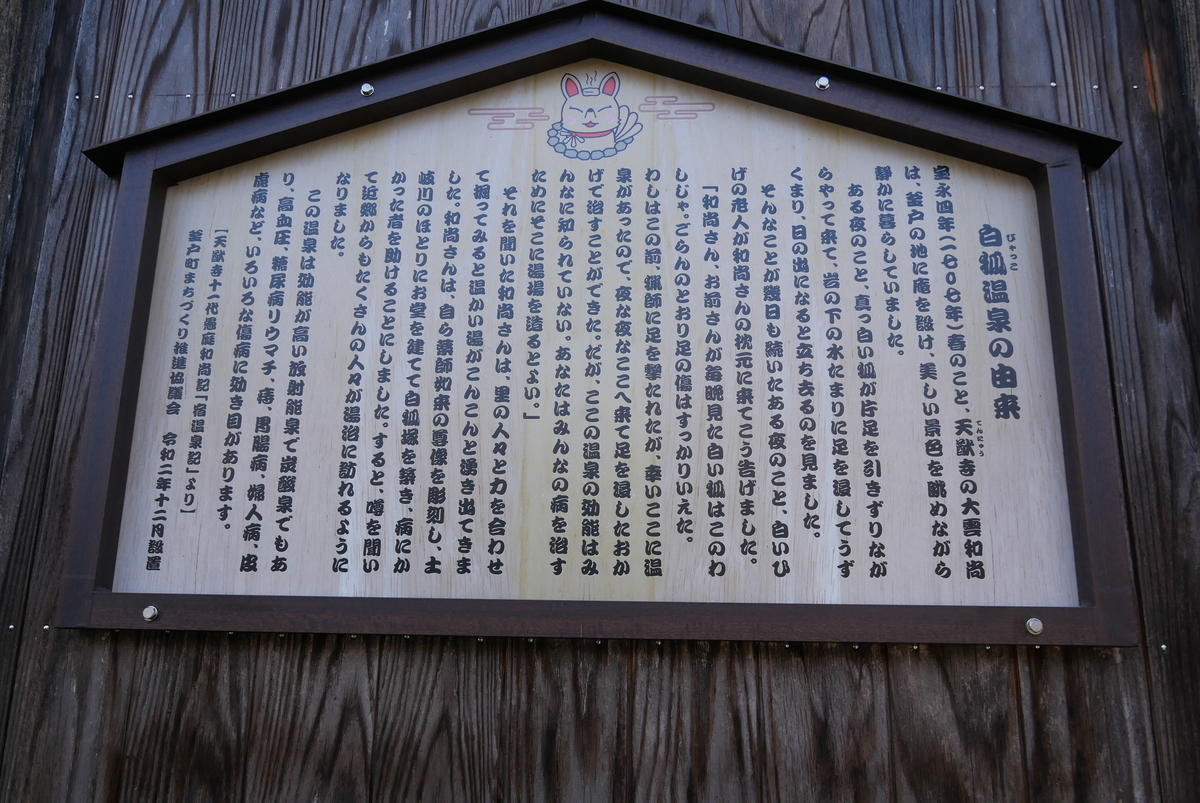 白狐温泉の由来
びゃっこ
宝永四年(一七〇七年)春のこと、天猷寺の大雲和尚
てんにゅう
は、釜戸の地に庵を設け、美しい景色を眺めながら
静かに暮らしていました。
ある夜のこと、真っ白い狐が片足を引きずりなが
らやって来て、岩の下の水たまりに足を浸してうず
くまり、日の出になると立ち去るのを見ました。
そんなことが幾日も続いたある夜のこと、白いひ
げの老人が和尚さんの枕元に来てこう告げました。
「和尚さん、お前さんが毎晩見た白い狐はこのわ
しじゃ。ごらんのとおり足の傷はすっかりいえた。
わしはこの前、猟師に足を撃たれたが、幸いここに温
泉があったので、夜な夜なここへ来て足を浸したおか
げで治すことができた。だが、ここの温泉の効能はみ
んなに知られていない。あなたはみんなの病を治す
ためにそこに湯場を造るとよい。」
それを聞いた和尚さんは、里の人々と力を合わせ
て掘ってみると温かい湯がこんこんと湧き出てきま
した。和尚さんは、自ら薬師如来の尊像を彫刻し、土
岐川のほとりにお堂を建てて白狐塚を築き、病にか
かった者を助けることにしました。すると、噂を聞い
て近郷からもたくさんの人々が湯治に訪れるように
なりました。
この温泉は効能が高い放射能泉で炭酸泉でもあ
り、高血圧、糖尿病リウマチ、痔、胃腸病、婦人病、皮
膚病など、いろいろな傷病に効き目があります。
[天猷寺十一代愚庭和尚記「宿温泉記」より]
釜戸町まちづくり推進協議会 令和二年十二月設置